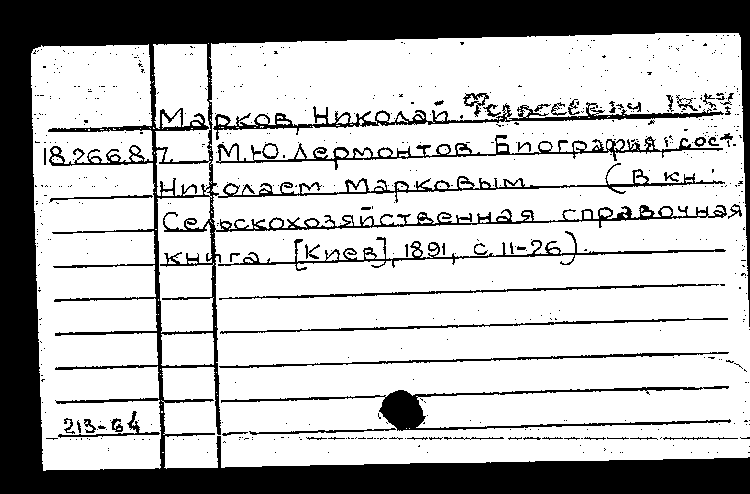 Марков, Николай
18.266.8.7. М.Ю. Лермонтов. Биография, сост.
Николаем Марковым. (В кн.:
Сельскохозяйственная справочная
книга. [Киев], 1891, с. 11-26).
213-64